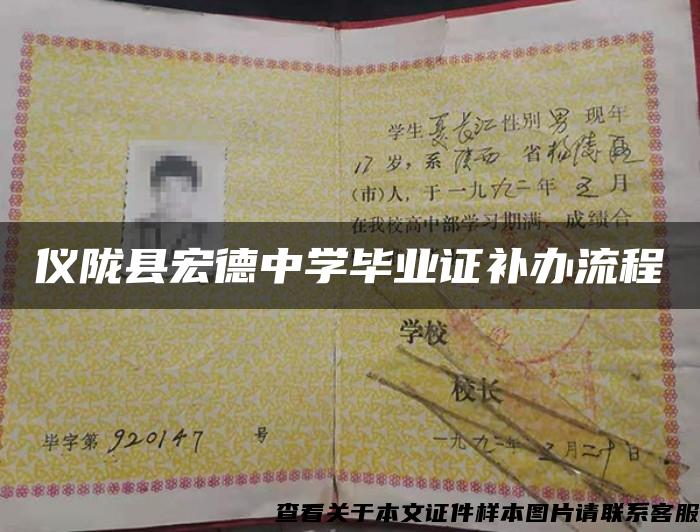 学生夏长江性别男 现年
17岁，系陕西 省杨陵区
(市)人，于一九九二年 五月
在我校高中部学习期满，成绩合
仪陇县宏德中学毕业证补办流程
学校
校长
毕字第 920147 号
一九九二年 五月二十日
查看关于本文证件样本图片请联系客服